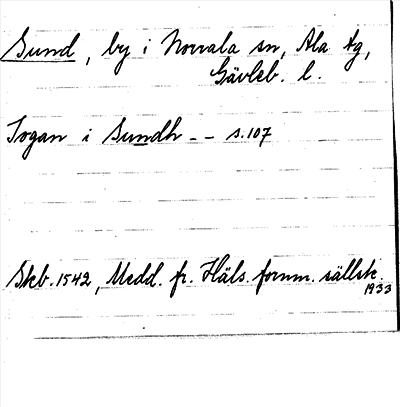 Sund, by i Norrala sn, Ala tg,
Gävleb. l.
Jogan i Sundh - - s.107
Skb. 1542, Medd. fr. Häls. fornm. sällsk.
1933